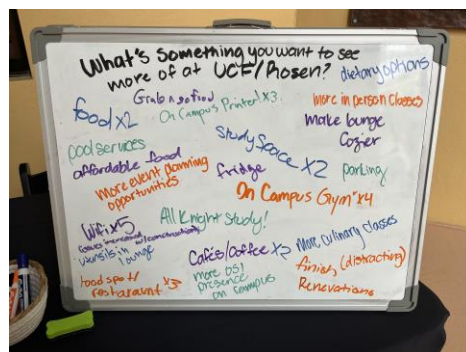 What's something you want to see
more of at UCF/Rosen?
dietary options
Grab n go food
On Campus Printer! x3
more in person classes
food x2
make lounge
cozier
Study Space x2
pool services
affordable food
more event planning
opportunities
fridge
parking
On Campus Gym x4
Wifi x5
All Knight Study!
utensils in
lounge
Cafés/Coffee x2
more culinary classes
more OSI
presence
on campus
finish (distracting)
Renovations
food spot/
restaraunt x3